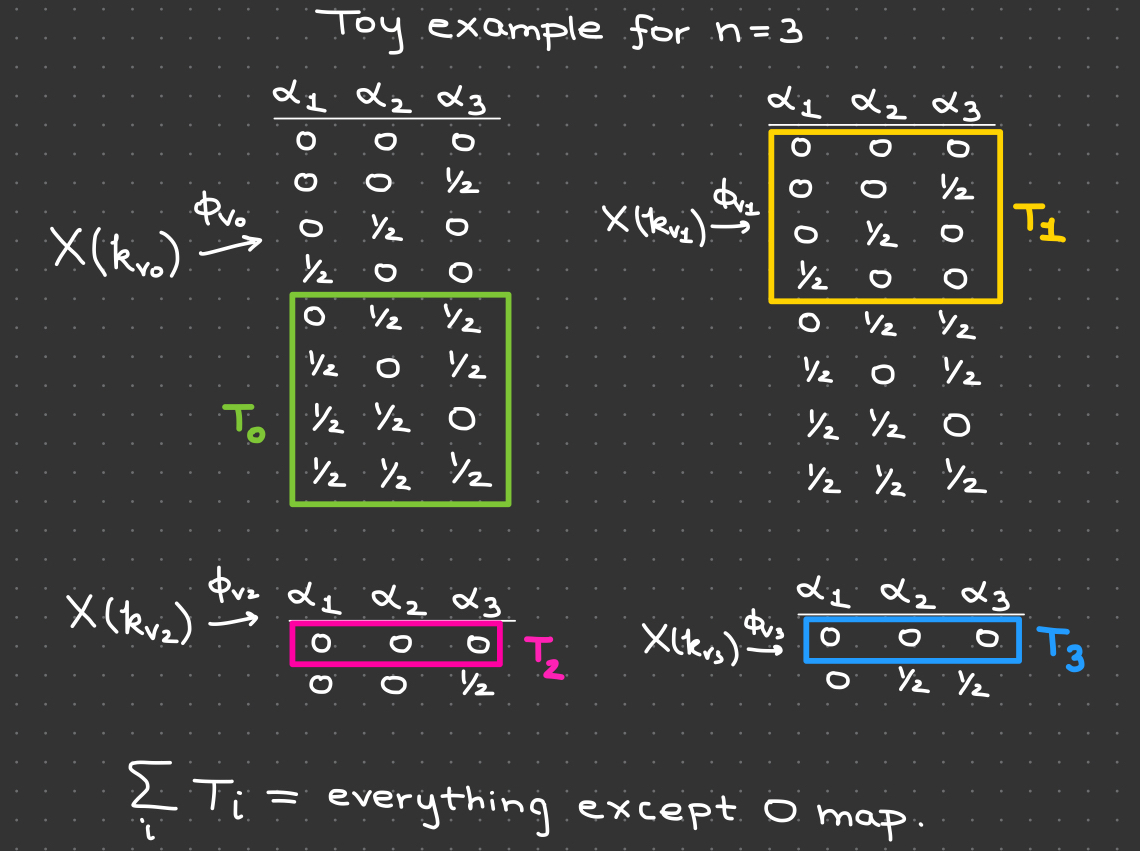 Toy example for n=3
α₁ α₂ α₃
0 0 0
0 0 ½
0 ½ 0
½ 0 0
0 ½ ½
½ 0 ½
½ ½ 0
½ ½ ½
X(k_{v₀}) →
ϕ_{v₀}
T₀
α₁ α₂ α₃
0 0 0
0 0 ½
0 ½ 0
½ 0 0
0 ½ ½
½ 0 ½
½ ½ 0
½ ½ ½
X(k_{v₁}) →
ϕ_{v₁}
T₁
X(k_{v₂}) →
ϕ_{v₂}
α₁ α₂ α₃
0 0 0
0 0 ½
T₂
X(k_{v₃}) →
ϕ_{v₃}
α₁ α₂ α₃
0 0 0
0 ½ ½
T₃
∑_i T_i = everything except 0 map.